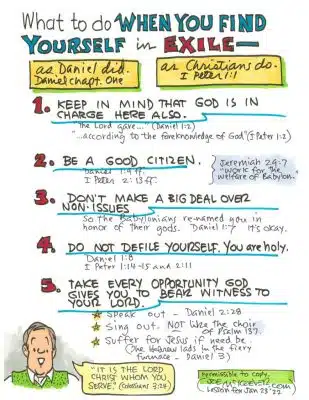 What to do WHEN YOU FIND
YOURSELF in EXILE—
as Daniel did.
Daniel chapt. One
as Christians do.
I Peter 1:1
1. KEEP IN MIND THAT GOD IS IN
CHARGE HERE ALSO.
"The Lord gave..." (Daniel 1:2)
"...according to the foreknowledge of God" (I Peter 1:2)
2. BE A GOOD CITIZEN.
Daniel 1:9 ff.
I Peter 2:13 ff.
Jeremiah 29:7
"Work for the
welfare of Babylon."
3. DON'T MAKE A BIG DEAL OVER
NON-ISSUES
So the Babylonians re-named you in
honor of their gods. Daniel 1:7 It's okay.
4. DO NOT DEFILE YOURSELF. You are holy.
Daniel 1:8
I Peter 1:14-15 and 2:11
5. TAKE EVERY OPPORTUNITY GOD
GIVES YOU TO BEAR WITNESS TO
YOUR LORD.
Speak out - Daniel 2:28
Sing out. NOT like the choir
of Psalm 137.
Suffer for Jesus if need be.
(The Hebrew lads in the fiery
furnace - Daniel 3)
"IT IS THE LORD
CHRIST WHOM YOU
SERVE." (Colossians 3:24)
Permissible to copy.
Lesson for Jan 23 '22